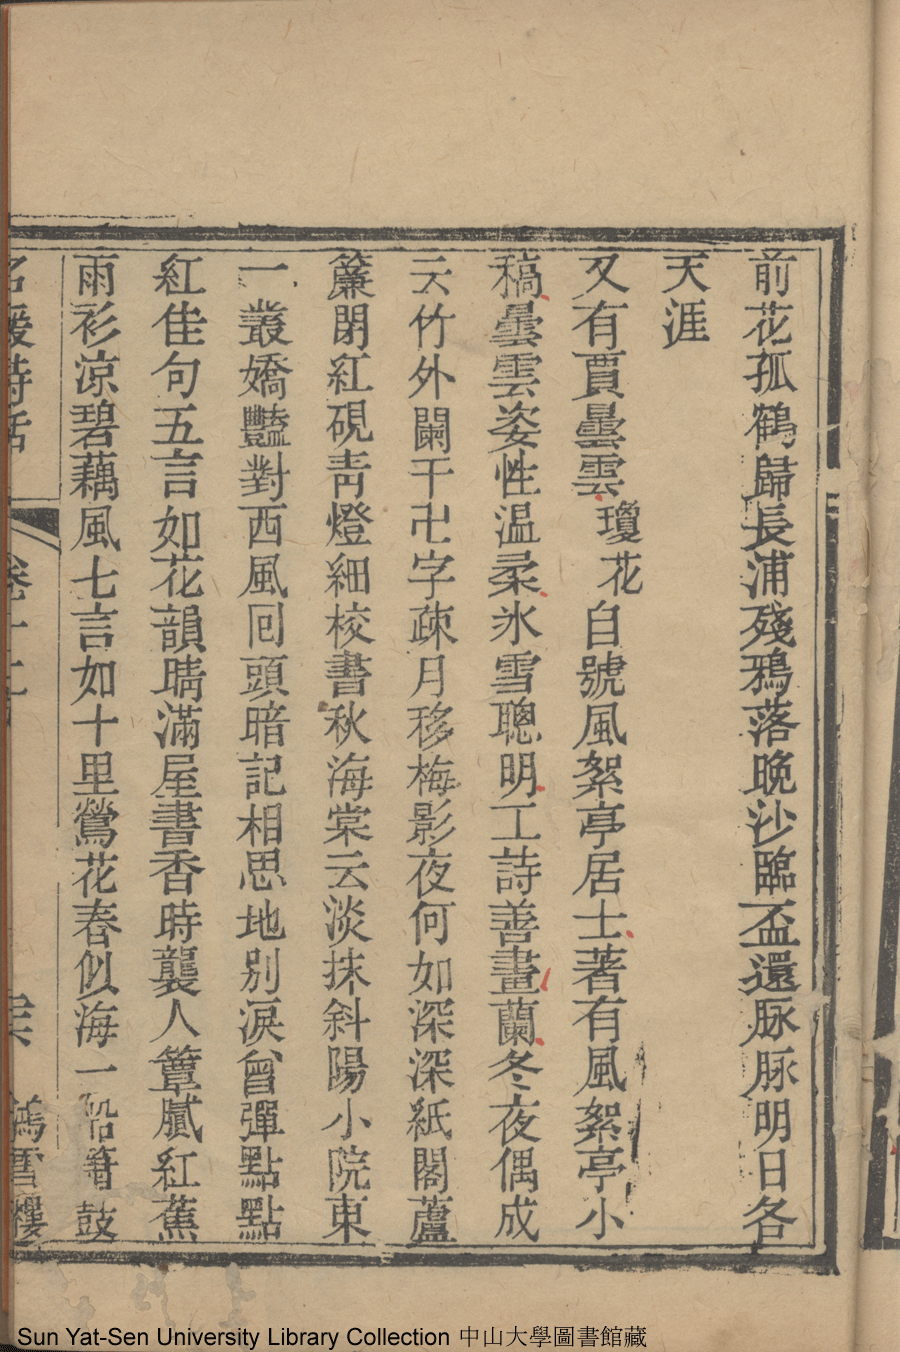 前花孤鶴歸長浦殘鴉落晚沙臨盃還脉脉明日各
天涯
又有賈曇雲瓊花自號風絮亭居士著有風絮亭小
稿曇雲姿性温柔氷雪聰明工詩善畫蘭冬夜偶成
云竹外闌干卍字疎月移梅影夜何如深深紙閣蘆
簾閉紅硯靑燈細校書秋海棠云淡抹斜陽小院東
一叢嬌豔對西風回頭暗記相思地别淚曾彈點點
紅佳句五言如花韻晴滿屋書香時襲人簟膩紅蕉
雨衫凉碧藕風七言如十里鶯花春似海一船簫鼓
名媛詩話 卷十 鴻雪樓
Sun Yat-Sen University Library Collection 中山大學圖書館藏